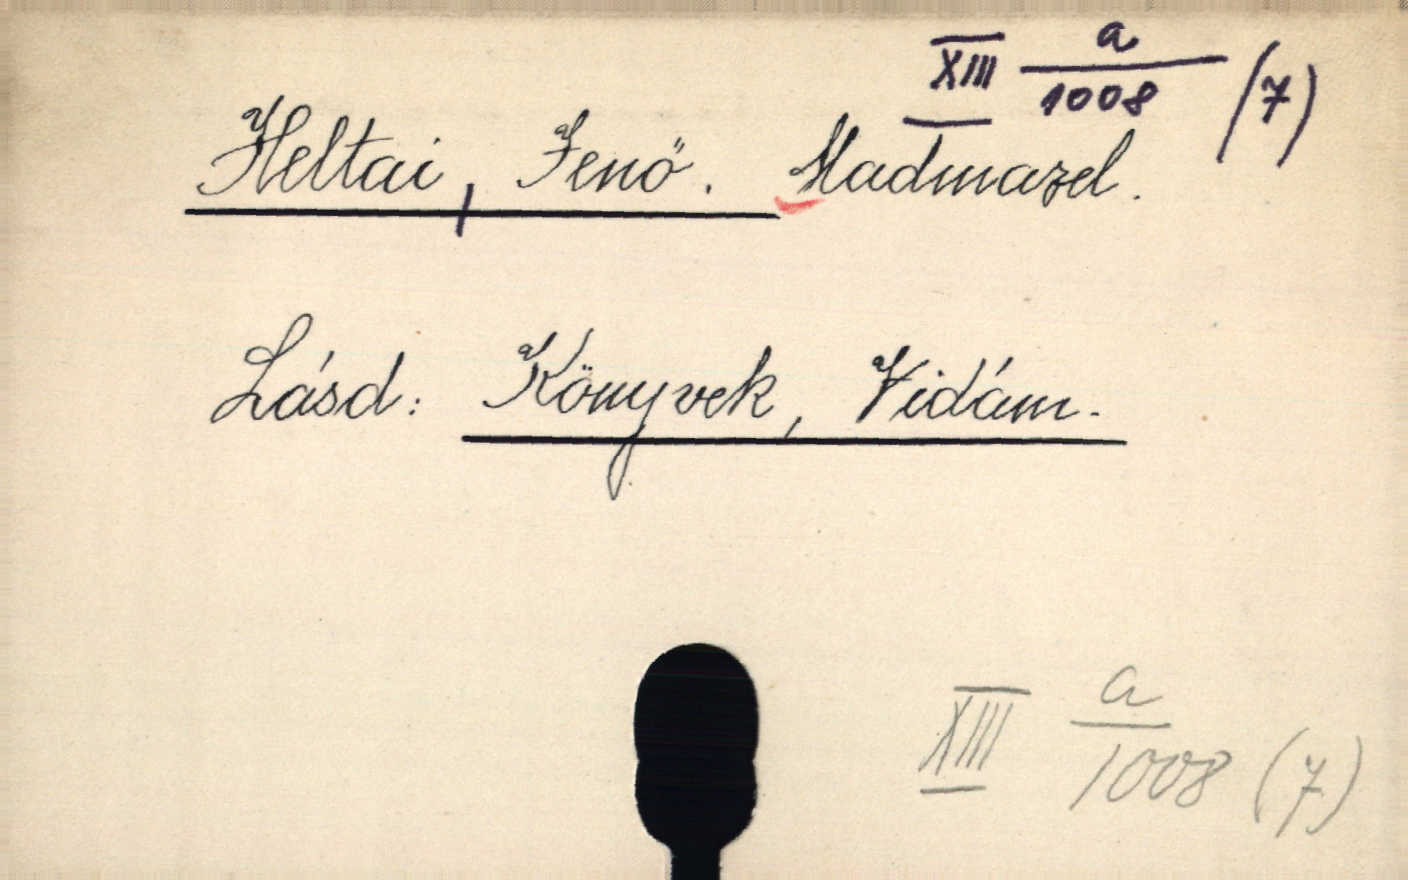 XIII a/1008 (7)
Heltai, Jenő. Madmazel.
Lásd: Könyvek, Vidám.
XIII a/1008 (7)